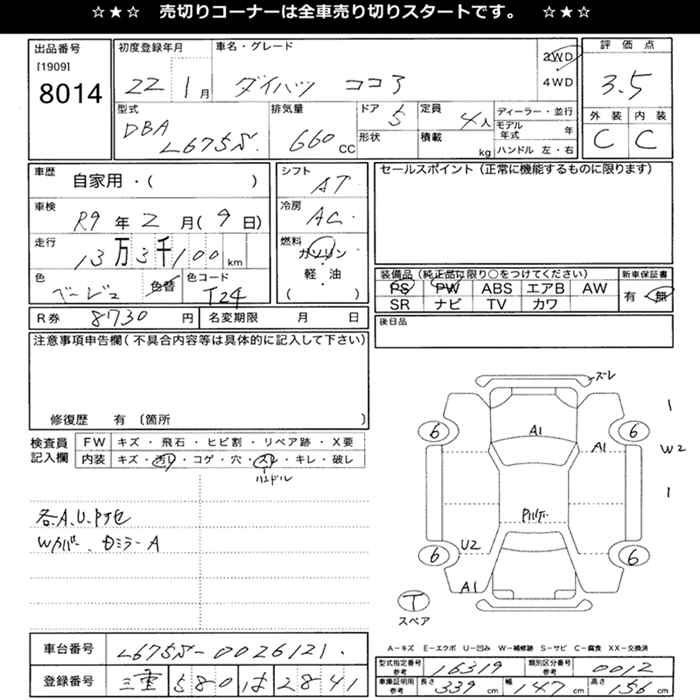 ☆★☆ 売切りコーナーは全車売り切りスタートです。 ☆★☆
出品番号
[1909]
8014
初度登録年月
22 1月
車名・グレード
ダイハツ ココア
2WD
4WD
評価点
3.5
外装 内装
C C
型式
DBA
L675S
排気量
660 CC
ドア
5
形状
定員
4人
積載
kg
ディーラー・並行
モデル年式 年
ハンドル 左・右
車歴
自家用・( )
車検
R9年2月(9日)
走行
13万3千100km
色
ベージュ
色替
色コード
T24
シフト
AT
冷房
AC
燃料
ガソリン
・
軽・油
( )
セールスポイント(正常に機能するものに限ります)
装備品(純正品に限り○をつけてください)
PS PW ABS エアB AW
SR ナビ TV カワ
新車保証書
有・無
R券 8730円
名変期限 月 日
後日品
注意事項申告欄(不具合内容等は具体的に記入して下さい)
修復歴 有〔箇所 〕
検査員
記入欄
FW キズ・飛石・ヒビ割・リペア跡・X要
内装 キズ・汚レ・コゲ・穴・スレ・キレ・破レ
ハンドル
各A.U.Pナセ
Wカバー.Cミラー A
ズレ
A1
A1
6 6
1
W2
1
U2
A1
6 6
T
スペア
A-キズ E-エクボ U-凹み W-補修跡 S-サビ C-腐食 XX-交換済
車台番号 L675S-0026121
登録番号 三重 580 は 2841
型式指定番号参考 16319
類別区分番号参考 0012
車庫証明用参考 長さ 339cm 幅 147cm 高さ 156cm